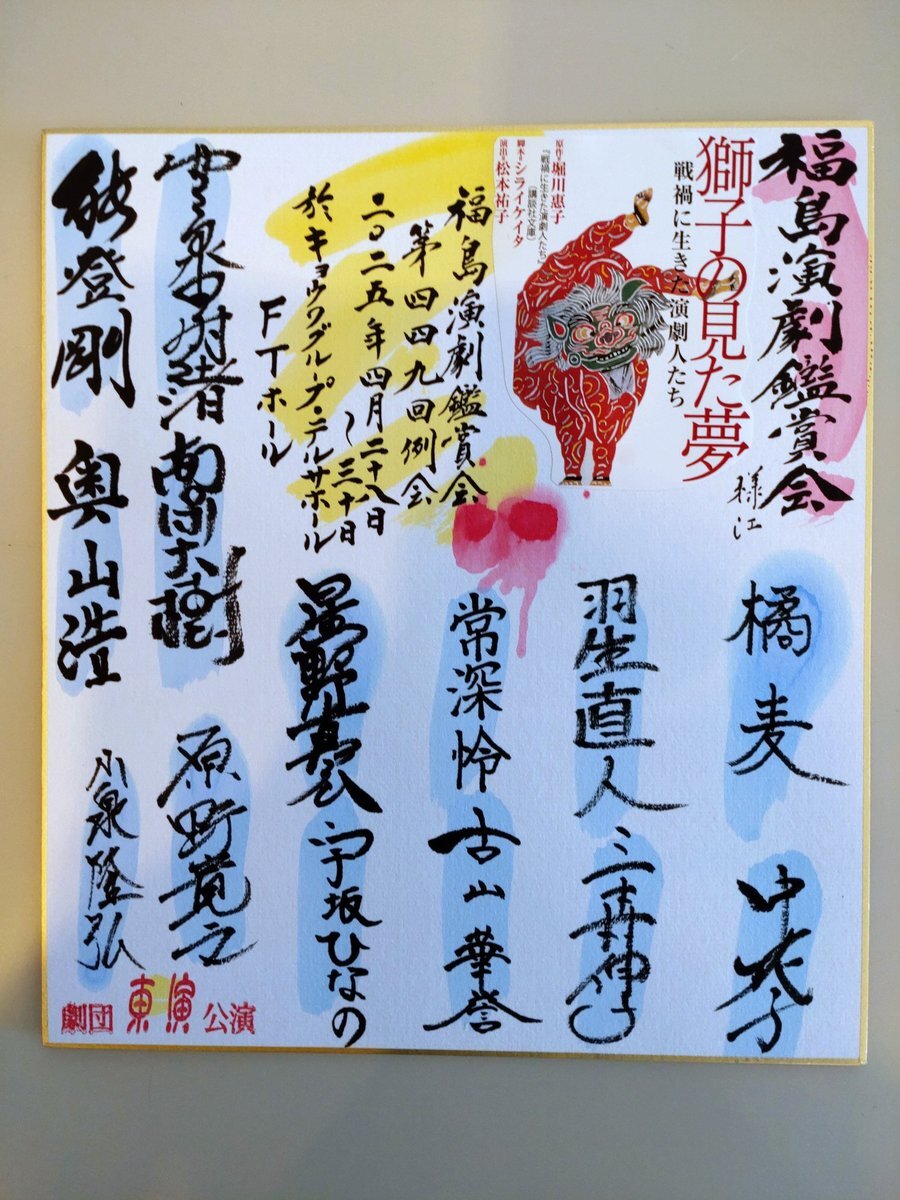 福島演劇鑑賞会
様江
獅子の見た夢
戦禍に生きた演劇人たち
原作=堀川惠子
『戦禍に生きた演劇人たち』
(講談社文庫)
脚本=シライケイタ
演出=松本祐子
福島演劇鑑賞会
第四四九回例会
二〇二五年四月二十八日
〜三十日
於キョウワグループ・テルサホール
FTホール
橘麦
羽生直人
常深怜
星野真衣
南保大樹
能登剛
奥山浩
中花子
三井伸
古山華誉
宇坂ひなの
原野寛之
小泉隆弘
劇団東演公演